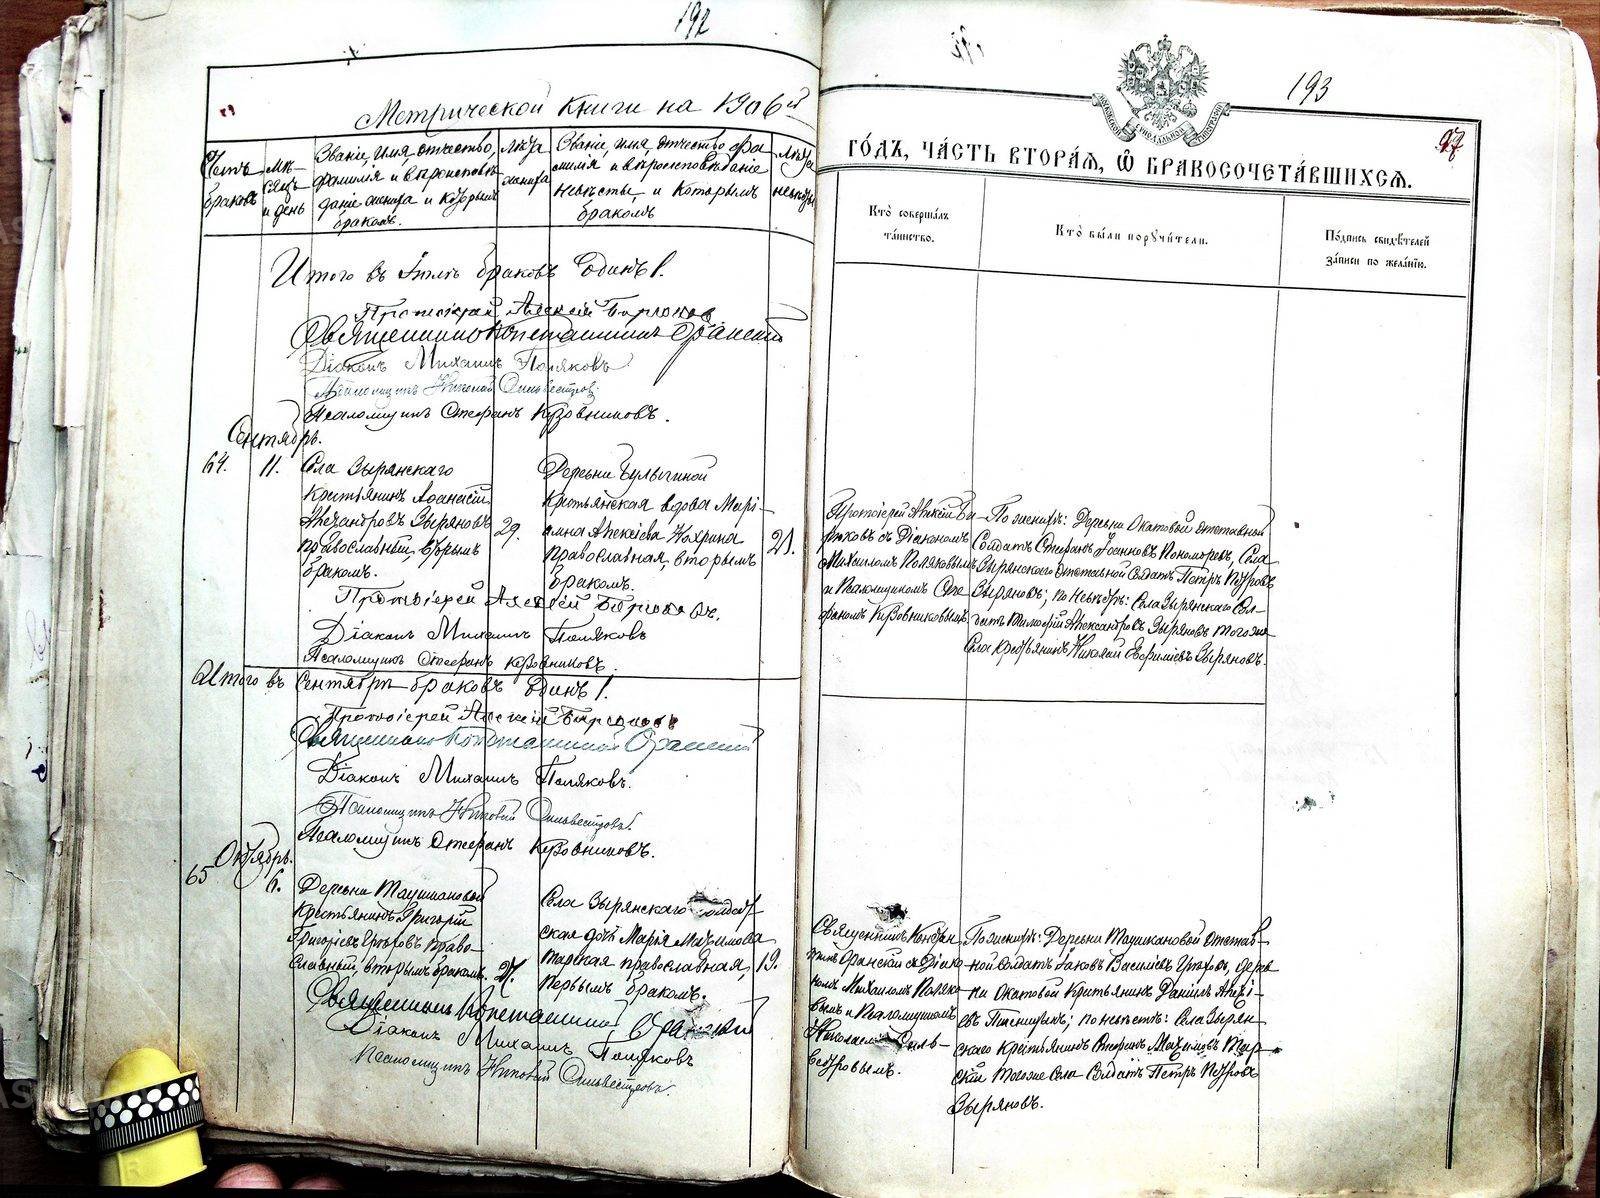 192
Метрической книги на 1906й
Счетъ браковъ
Мѣ-
сяцъ
и день
Званіе, имя, отчество,
фамилія и вѣроисповѣ-
даніе жениха и которымъ
бракомъ.
Лѣта
жениха
Званіе, имя, отчество, фа-
милія и вѣроисповѣданіе
невѣсты, и которымъ
бракомъ
Лѣта
невѣсты
Итого въ Іюлѣ браковъ Одинъ 1.
Протоіерей Алексій Бирюковъ
Священникъ Константинъ
Діаконъ Михаилъ Поляковъ
Псаломщикъ Николай Сильвестровъ
Псаломщикъ Стефанъ Кузовниковъ.
Сентябрь.
64.
11.
Села Зырянскаго
Крестьянинъ Аѳанасій
Александровъ Зыряновъ
православный, вторымъ
бракомъ.
29.
Деревни Булыгиной
Крестьянская вдова Марі-
амна Алексіева
православная, вторымъ
бракомъ.
21.
Протоіерей Алексій Бирюковъ.
Діаконъ Михаилъ Поляковъ
Псаломщикъ Стефанъ Кузовниковъ.
Итого въ Сентябрѣ браковъ Одинъ 1.
Протоіерей Алексій Бирюковъ
Священникъ Константинъ
Діаконъ Михаилъ Поляковъ.
Псаломщикъ Николай Сильвестровъ.
Псаломщикъ Стефанъ Кузовниковъ.
Октябрь.
65
6.
Деревни
Крестьянинъ Григорій
Григоріевъ право-
славный, вторымъ бракомъ.
27.
Села Зырянскаго солдат-
ская дочь Марія Максимова
православная,
первымъ бракомъ.
19.
Священникъ Константинъ
Діаконъ Михаилъ Поляковъ
Псаломщикъ Николай Сильвестровъ.
193
97
ГО́ДЪ, ЧА́СТЬ ВТОРА́Я, Ѽ БРАКОСОЧЕТА́ВШИХСЯ.
Кто̀ соверша́лъ
та́инство.
Кто̀ бы́ли порꙋчи́тели.
По́дпись свидѣ́телей
за́писи по жела́нїю.
Протоіерей Алексій Би-
рюковъ съ Діакономъ
Михаиломъ Поляковымъ
и Псаломщикомъ Сте-
фаномъ Кузовниковымъ
По женихѣ: Деревни Окатовой отставной
Солдатъ Стефанъ Іоанновъ Пономаревъ, Села
Зырянскаго отставной Солдатъ Петръ Петровъ
Зыряновъ; по невѣстѣ: Села Зырянскаго Сол-
датъ Тимофей Александровъ Зыряновъ того же
Села Крестьянинъ Николай Евфиміевъ Зыряновъ.
Священникъ Констан-
тинъ съ Діако-
номъ Михаиломъ Поляко-
вымъ и Псаломщикомъ
Николаемъ Силь-
вестровымъ.
По женихѣ: Деревни отстав-
ной солдатъ Іаковъ Василіевъ дерев-
ни Окатовой Крестьянинъ Даніилъ
по невѣстѣ: Села Зырян-
скаго Крестьянинъ Стефанъ Максимовъ
того же Села Солдатъ Петръ Петровъ
Зыряновъ.